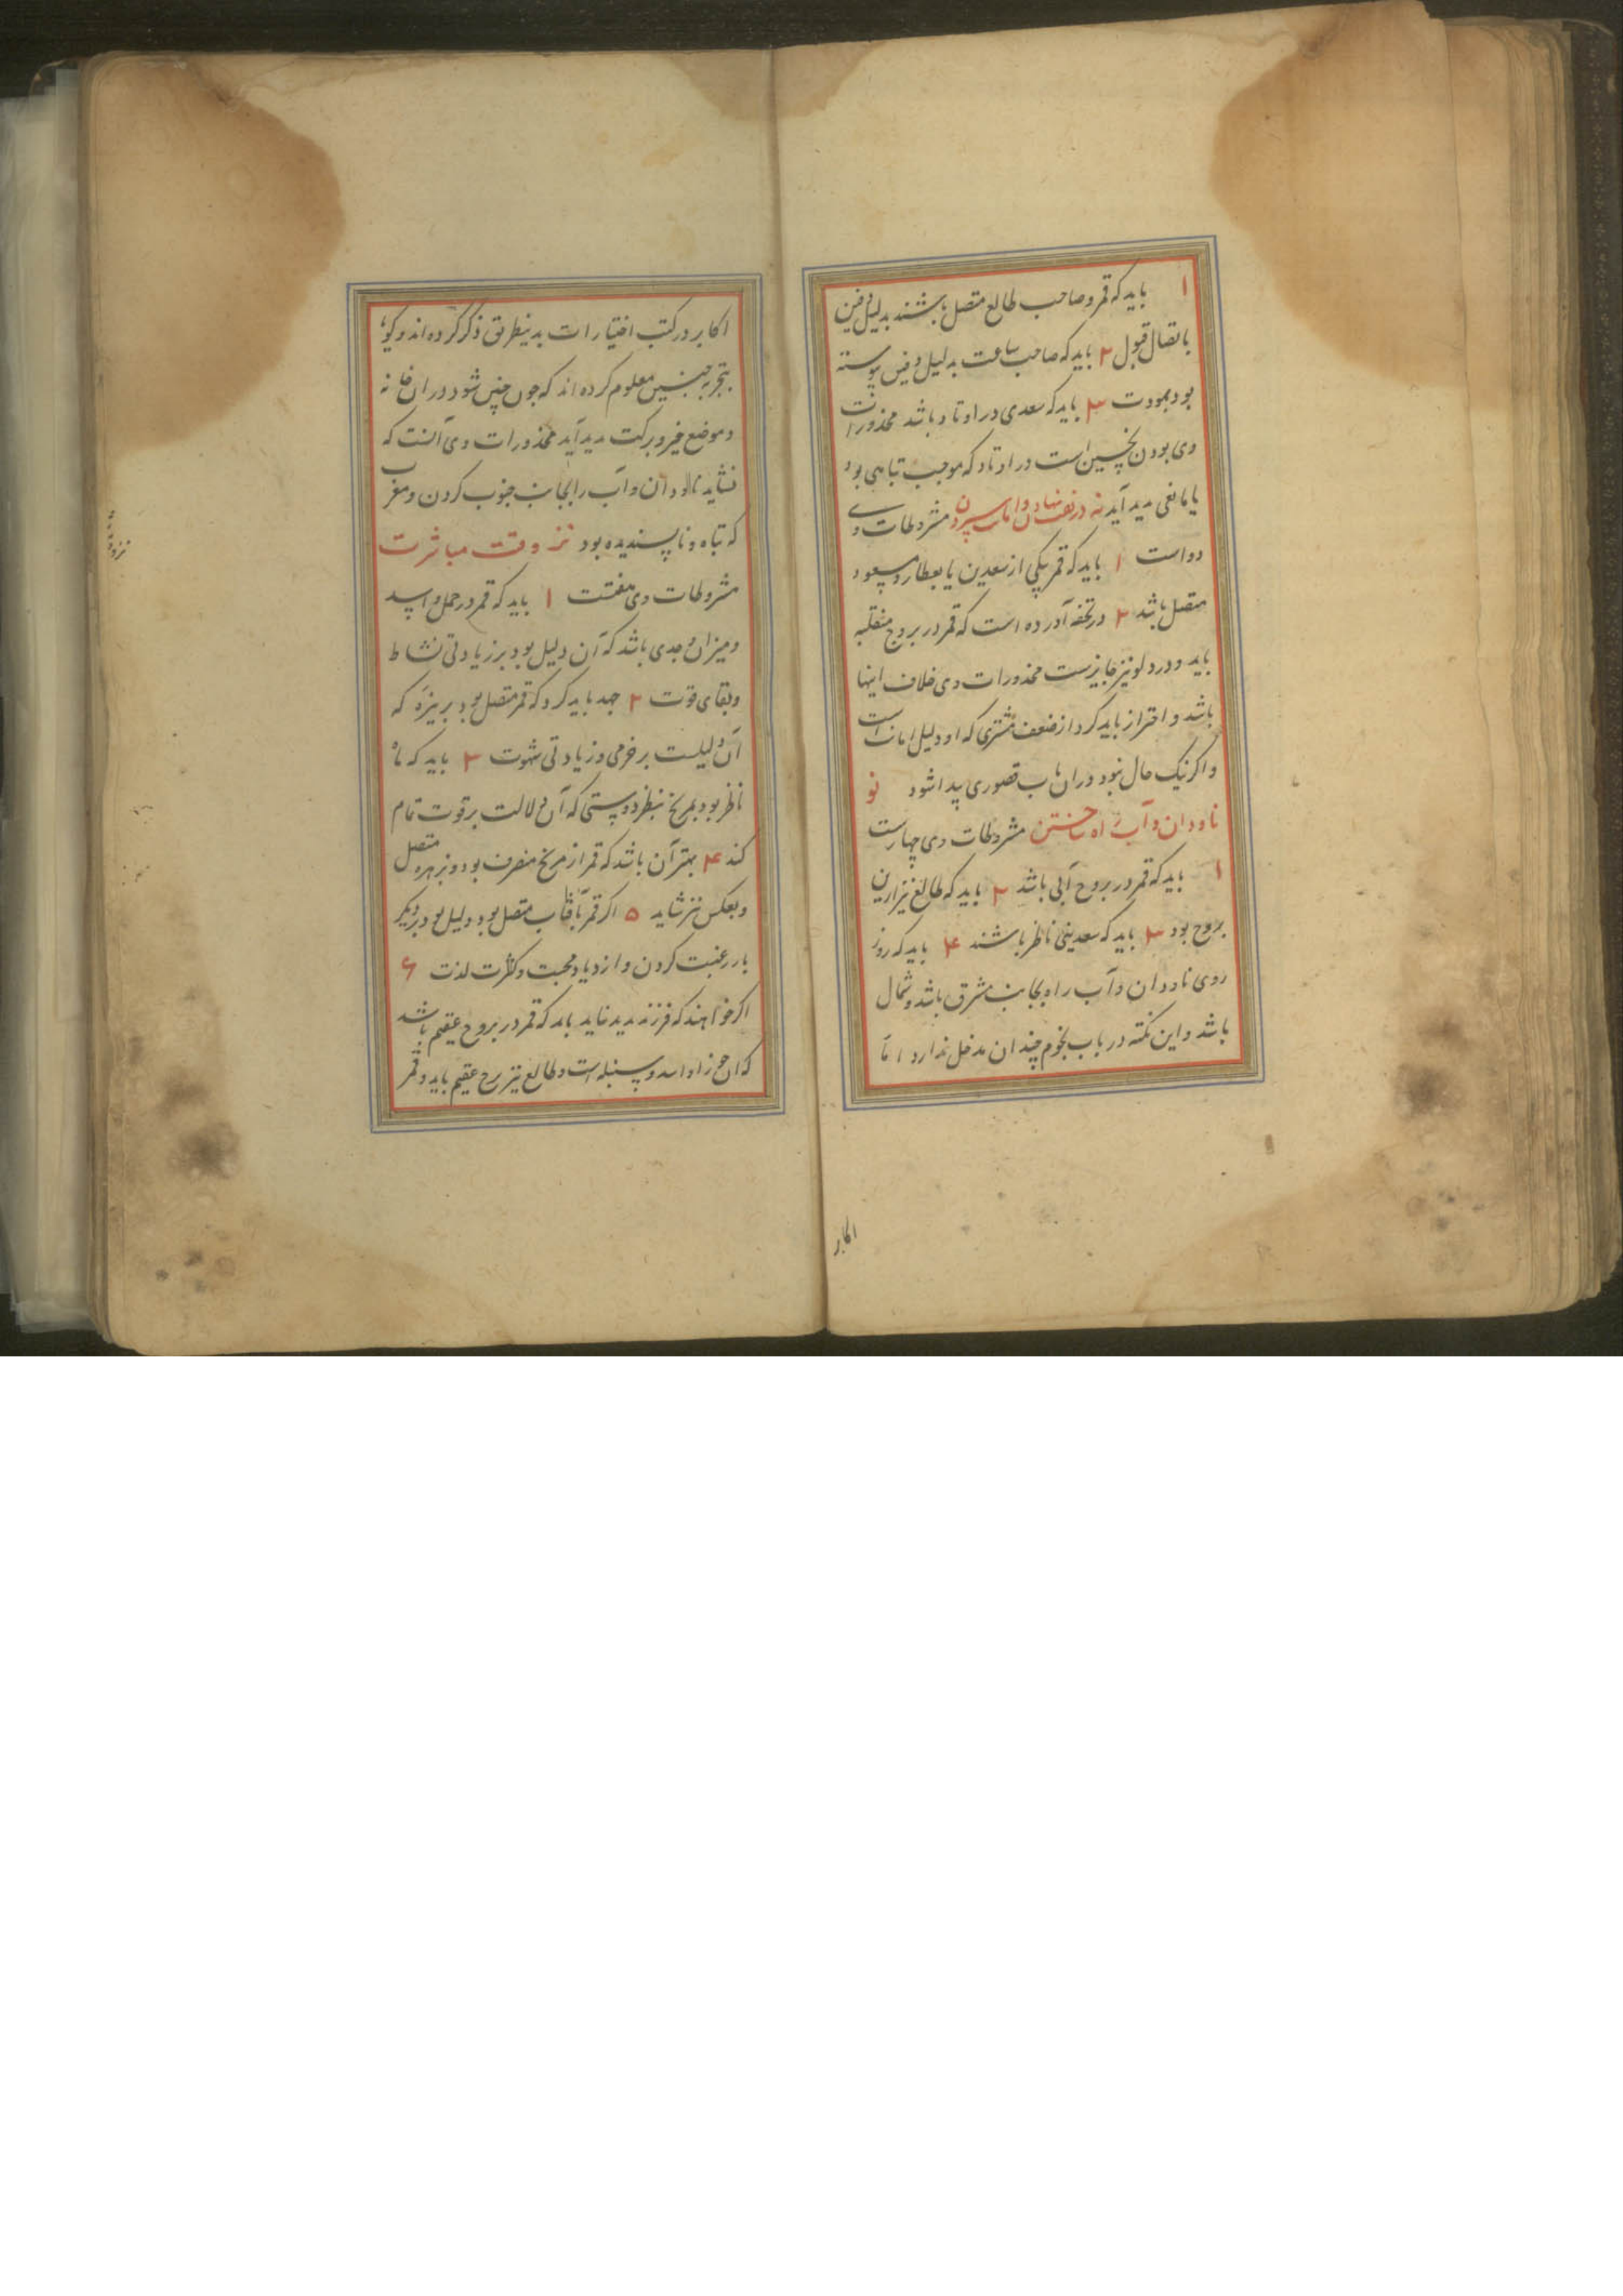 ۱ باید که قمر و صاحب طالع متصل باشند بدلیل دفین
باتصال قبول ۲ باید که صاحب ساعت بدلیل دفین پیوسته
بود بمودت ۳ باید که سعدی در اوتاد باشد محذورات
وی بودن نحسین است در اوتاد که موجب تباهی بود
یا مانعی پدید آید نه در نهادن و امانت سپردن مشروطات وی
دو است ۱ باید که قمر بیکی از سعدین یا بعطارد مسعود
متصل باشد ۲ در تحفه آورده است که قمر در بروج منقلبه
باید و در دلو نیز جایزست محذورات وی خلاف اینها
باشد و احتراز باید کرد از ضعف مشتری که او دلیل امانت است
و اکر نیک حال نبود در ان باب قصوری پیدا شود نو
ناودان و آب راه ساختن مشروطات وی چهارست
۱ باید که قمر در بروج آبی باشد ۲ باید که طالع نیز ازین
بروج بود ۳ باید که سعدینی ناظر باشند ۴ باید که روز
روی ناودان و آب راه بجانب مشرق باشد و شمال
باشد و این نکته در باب نجوم چندان مدخل ندارد اما
اکابر
اکابر در کتب اختیارات بدینطریق ذکر کرده اند و کویا
بتجربه چنین معلوم کرده اند که چون چنین شود در ان خانه
و موضع خیر و برکت پدید آید محذورات وی آنست که
نشاید ناودان و آب را بجانب جنوب کردن و مغرب
که تباه و ناپسندیده بود نز وقت مباشرت
مشروطات وی هفتست ۱ باید که قمر در حمل و اسد
و میزان و جدی باشد که آن دلیل بود بر زیادتی نشاط
و بقای قوت ۲ جهد باید کرد که قمر متصل بود بزهره که
آن دلیلست بر خرمی و زیادتی شهوت ۳ باید که ماه
ناظر بود بمریخ بنظر دوستی که آن دلالت بر قوت تمام
کند ۴ بهتر آن باشد که قمر از مریخ منصرف بود و بزهره متصل
و بعکس نیز شاید ۵ اکر قمر بآفتاب متصل بود دلیل بود بر دیکر
بار رغبت کردن و ازدیاد محبت و کثرت لذت ۶
اکر خواهند که فرزند پدید نیاید باید که قمر در بروج عقیم باشد
که ان جوزا و اسد و سنبله است و طالع نیز برج عقیم باید و قمر